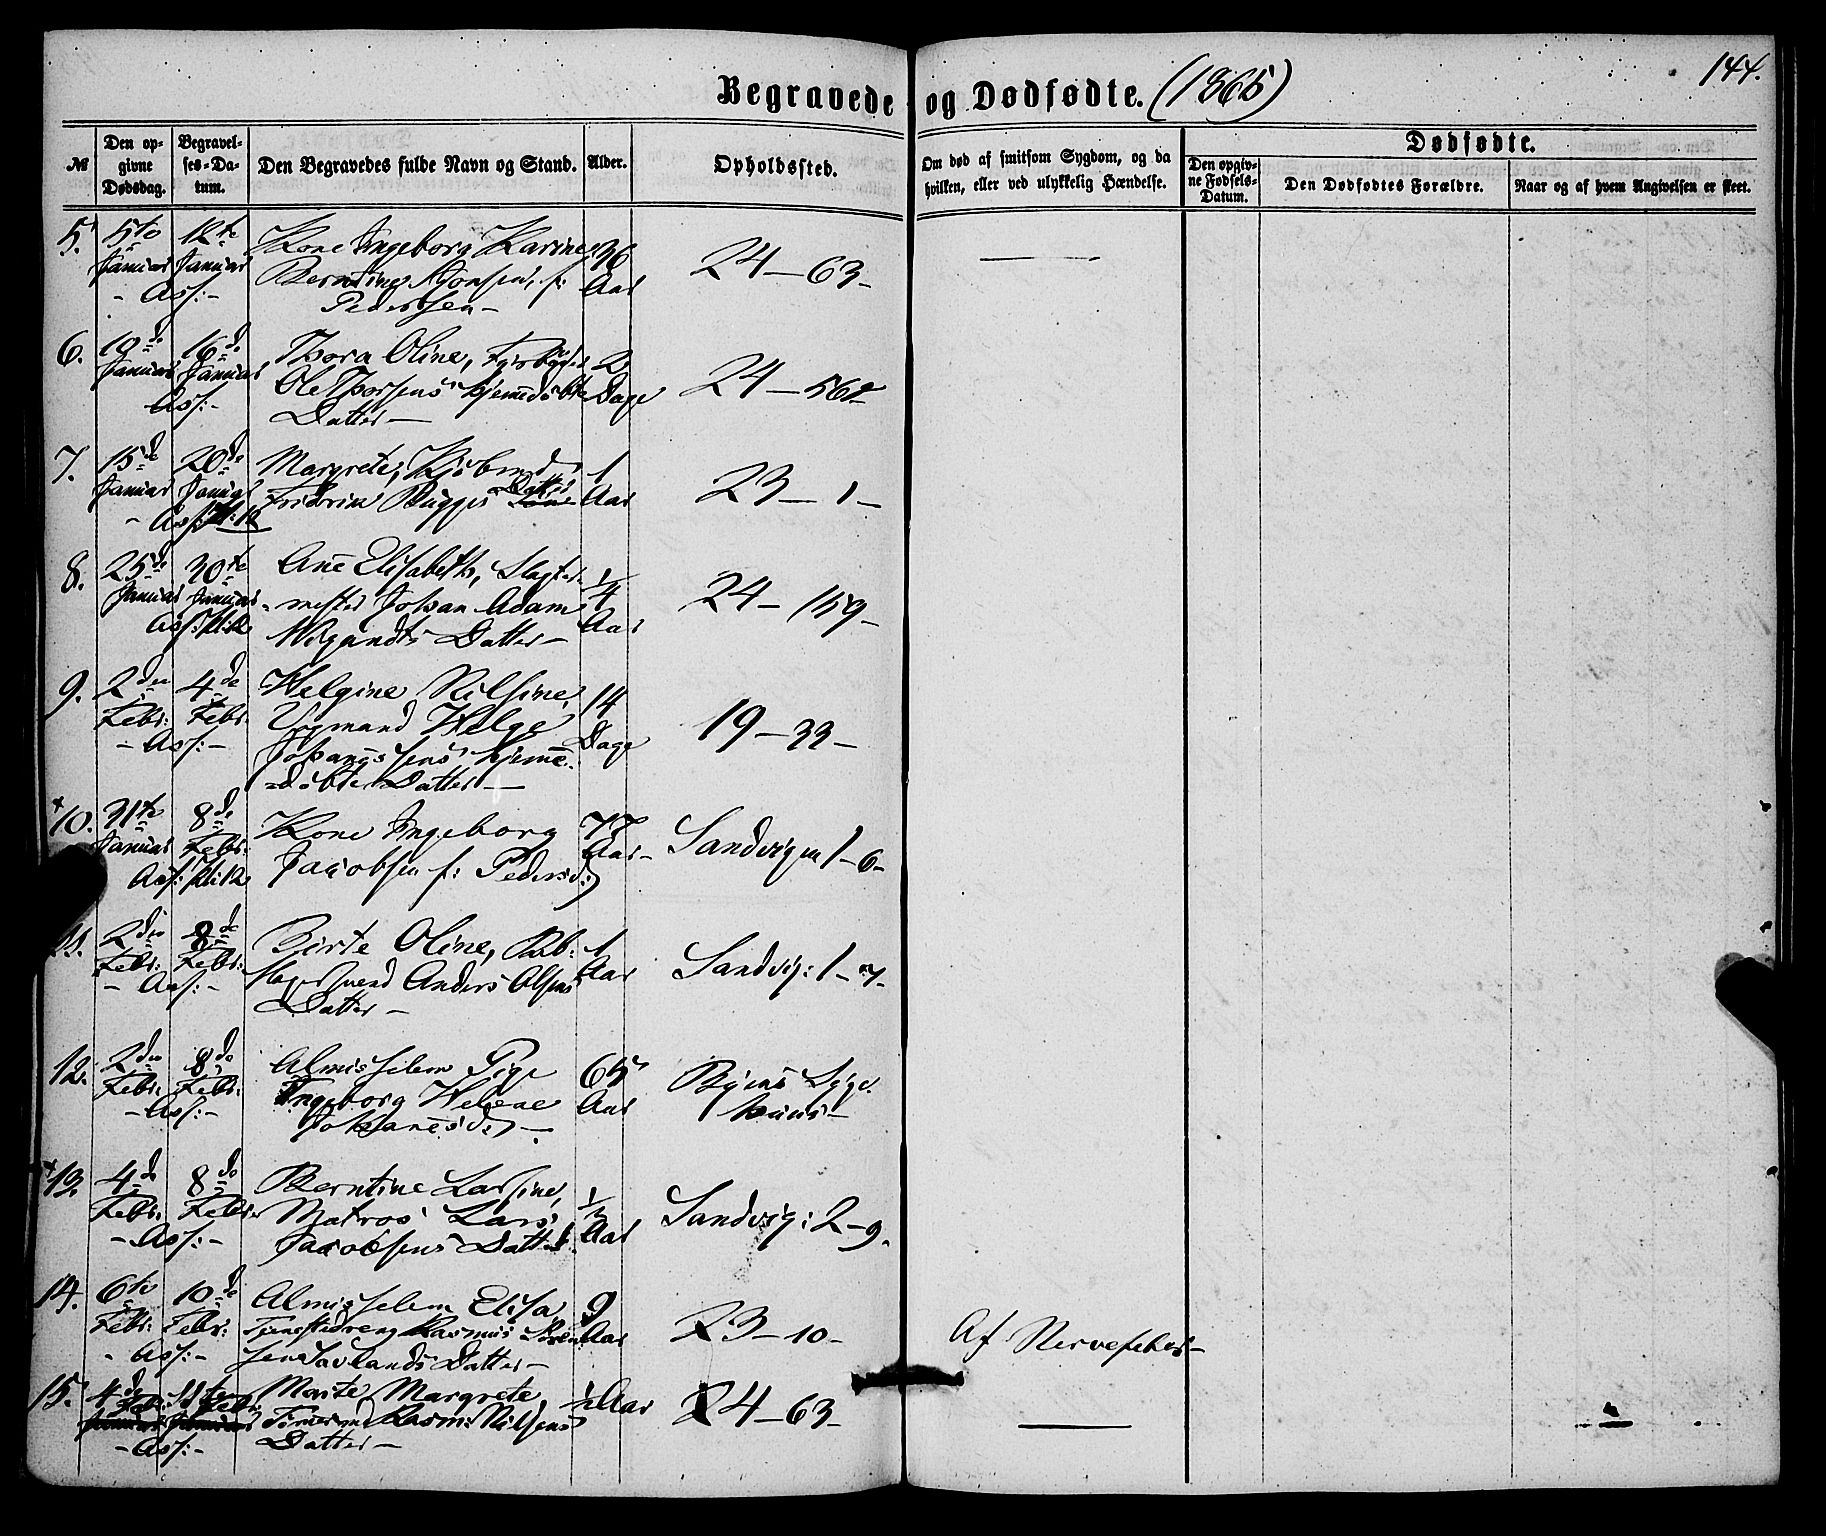 144.
Begravede og Dødfødte. (1865)
№
Den opgivne Dødsdag.
Begravelses-Datum.
Den Begravedes fulde Navn og Stand.
Alder.
Opholdssted.
Om død af smitsom Sygdom, og da hvilken, eller ved ulykkelig Hændelse.
Dødfødte.
Den opgivne Fødsels-Datum.
Den Dødfødtes Forældre.
Naar og af hvem Angivelsen er skeet.
5. 5te 12te Kone Ingeborg Karine 36 24-63-
Januar Januar Berntine Aar
- Ass:- Pedersen-
6. 10de 16de Thora Oline, 2 24-
Januar Januar Ole Thorsens hjemmedøbte Dage
Ass:- Datter-
7. 15de 20de Margrete, Kjøbmd 1 23-1-
Januar Januar Bugges Datter Aar
- Ass: Kl: 12
8. 25de 30te Ane Elisabeth, Slagter- 1/4 24-159-
Januar Januar mester Johan Adam Aar
Ass: Kl: 12 Wigandts Datter-
9. 2den 4de Helgine Nilsine, 14 19-33-
Febr: Febr: Helge Dage
- Ass:- Johannessens hjemme-
døbte Datter-
10. 31te 8de Kone Ingeborg 77 Sandvigen 1-6-
Januar Febr: Jacobsen f: Pedersd: Aar-
Ass: Kl: 12
11. 2den 8de Birte Oline, 1 Sandvig: 1-7-
Febr: Febr: Anders Olsens Aar
- Ass:- Datter-
12. 2den 8de Almisselem Pige 65 Byens Syge-
Febr: Febr: Ingeborg Helene Aar huus-
- Ass:- Johannesd:-
13. 4de 8de Berntine Larsine, Sandvig: 2-9.
Febr: Febr: Matros Lars Aar
- Ass:- Jacobsens Datter
14. 6te 10de Almisselem Elisa, 9 23-10- Af Nervefeber-
Febr: Febr: Rasmus Aar
- Ass:- Datter-
15. 4de 11te Marte Margrete 1/2 Aar 24-63-
Febr: Febr: Rasm: Nilsens
Januar Januar
- Ass:- Datter-